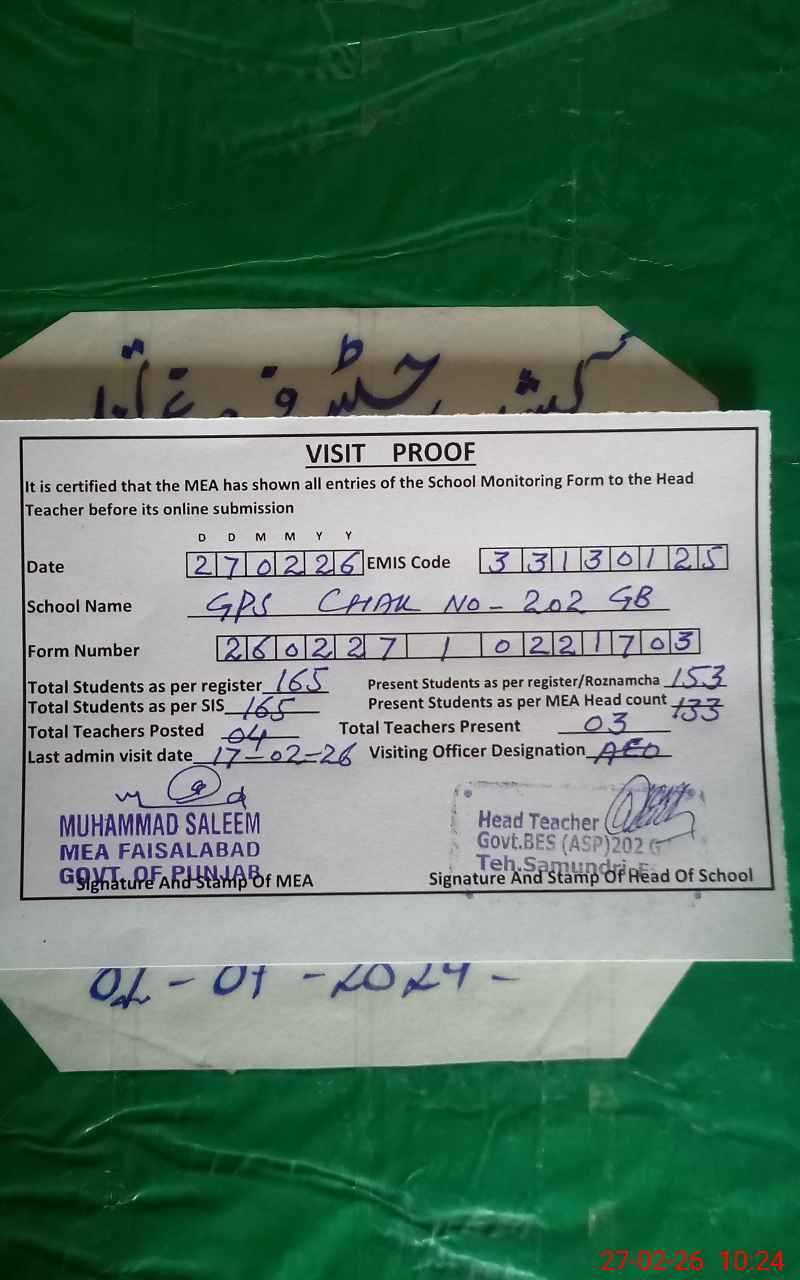 VISIT PROOF
It is certified that the MEA has shown all entries of the School Monitoring Form to the Head
Teacher before its online submission
D D M M Y Y
Date 270226 EMIS Code 33130125
School Name GPS CHAK NO - 202 GB
Form Number 260227 1 0221703
Total Students as per register 165 Present Students as per register/Roznamcha 153
Total Students as per SIS 165 Present Students as per MEA Head count 133
Total Teachers Posted 04 Total Teachers Present 03
Last admin visit date 17-02-26 Visiting Officer Designation AEO
MUHAMMAD SALEEM
MEA FAISALABAD
GOVT. OF PUNJAB
Signature And Stamp Of MEA
Head Teacher
Govt.BES (ASP)202 G
Teh.Samundri
Signature And Stamp Of Head Of School
-2024-
27-02-26 10:24